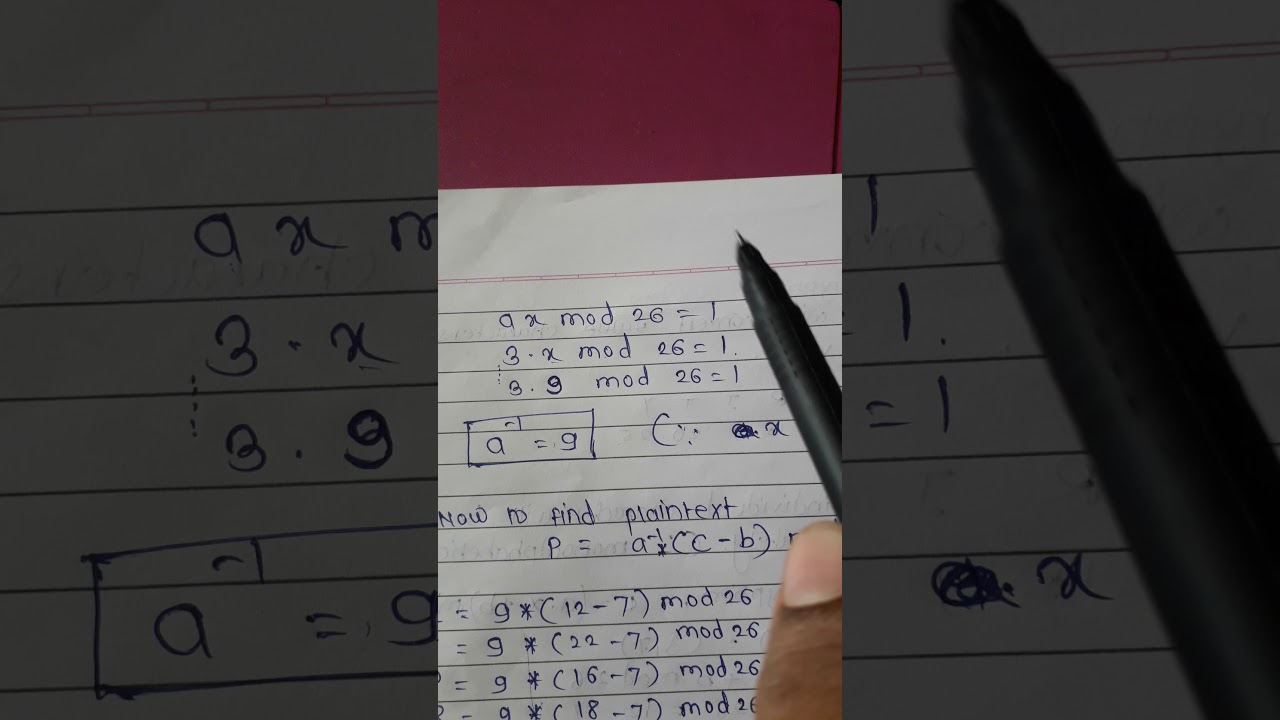 a x mod 26 = 1
3 . x mod 26 = 1.
3 . 9 mod 26 = 1
a⁻¹ = 9 (∵ x
Now to find plaintext
P = a⁻¹*(C - b)
= 9 * (12 - 7) mod 26
= 9 * (22 - 7) mod 26
= 9 * (16 - 7) mod 26
= 9 * (18 - 7) mod 26